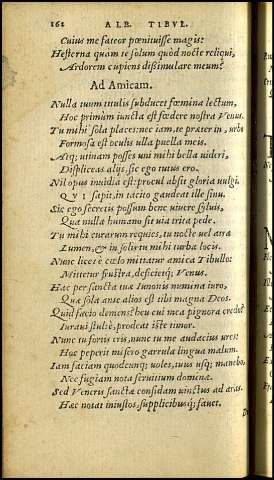 162 ALB. TIBVL.
Cuius me fateor pœnituisse magis:
Hesterna quam te solum quòd nocte reliqui,
Ardorem cupiens dißimulare meum?
Ad Amicam.
Nulla tuum nobis subducet fœmina lectum,
Hoc primùm iuncta est fœdere nostra Venus.
Tu mihi sola places: nec iam, te præter in, urbe
Formosa est oculis ulla puella meis.
Atq; utinam posses uni mihi bella uideri,
Displiceas alijs, sic ego tutus ero.
Nil opus inuidia est: procul absit gloria uulgi.
QVI sapit, in tacito gaudeat ille sinu.
Sic ego secretis possum bene uiuere syluis,
Qua nulla humano sit uia trita pede.
Tu mihi curarum requies, tu nocte uel atra
Lumen, & in solis tu mihi turba locis.
Nunc licet è cœlo mittatur amica Tibullo:
Mittetur frustra, deficietq; Venus.
Hæc per sancta tuæ Iunonis numina iuro,
Quæ sola ante alios est mihi magna Deos.
Quid facio demens? heu cui mea pignora cedo?
Iuraui stultè, prodeat iste timor.
Nunc tu fortis eris, nunc tu me audacius ures:
Hoc peperit misero garrula lingua malum.
Iam faciam quodcunq; uoles, tuus usq; manebo,
Nec fugiam notæ seruitium dominæ.
Sed Veneris sanctæ considam uinctus ad aras.
Hæc notat iniustos, supplicibusq; fauet.